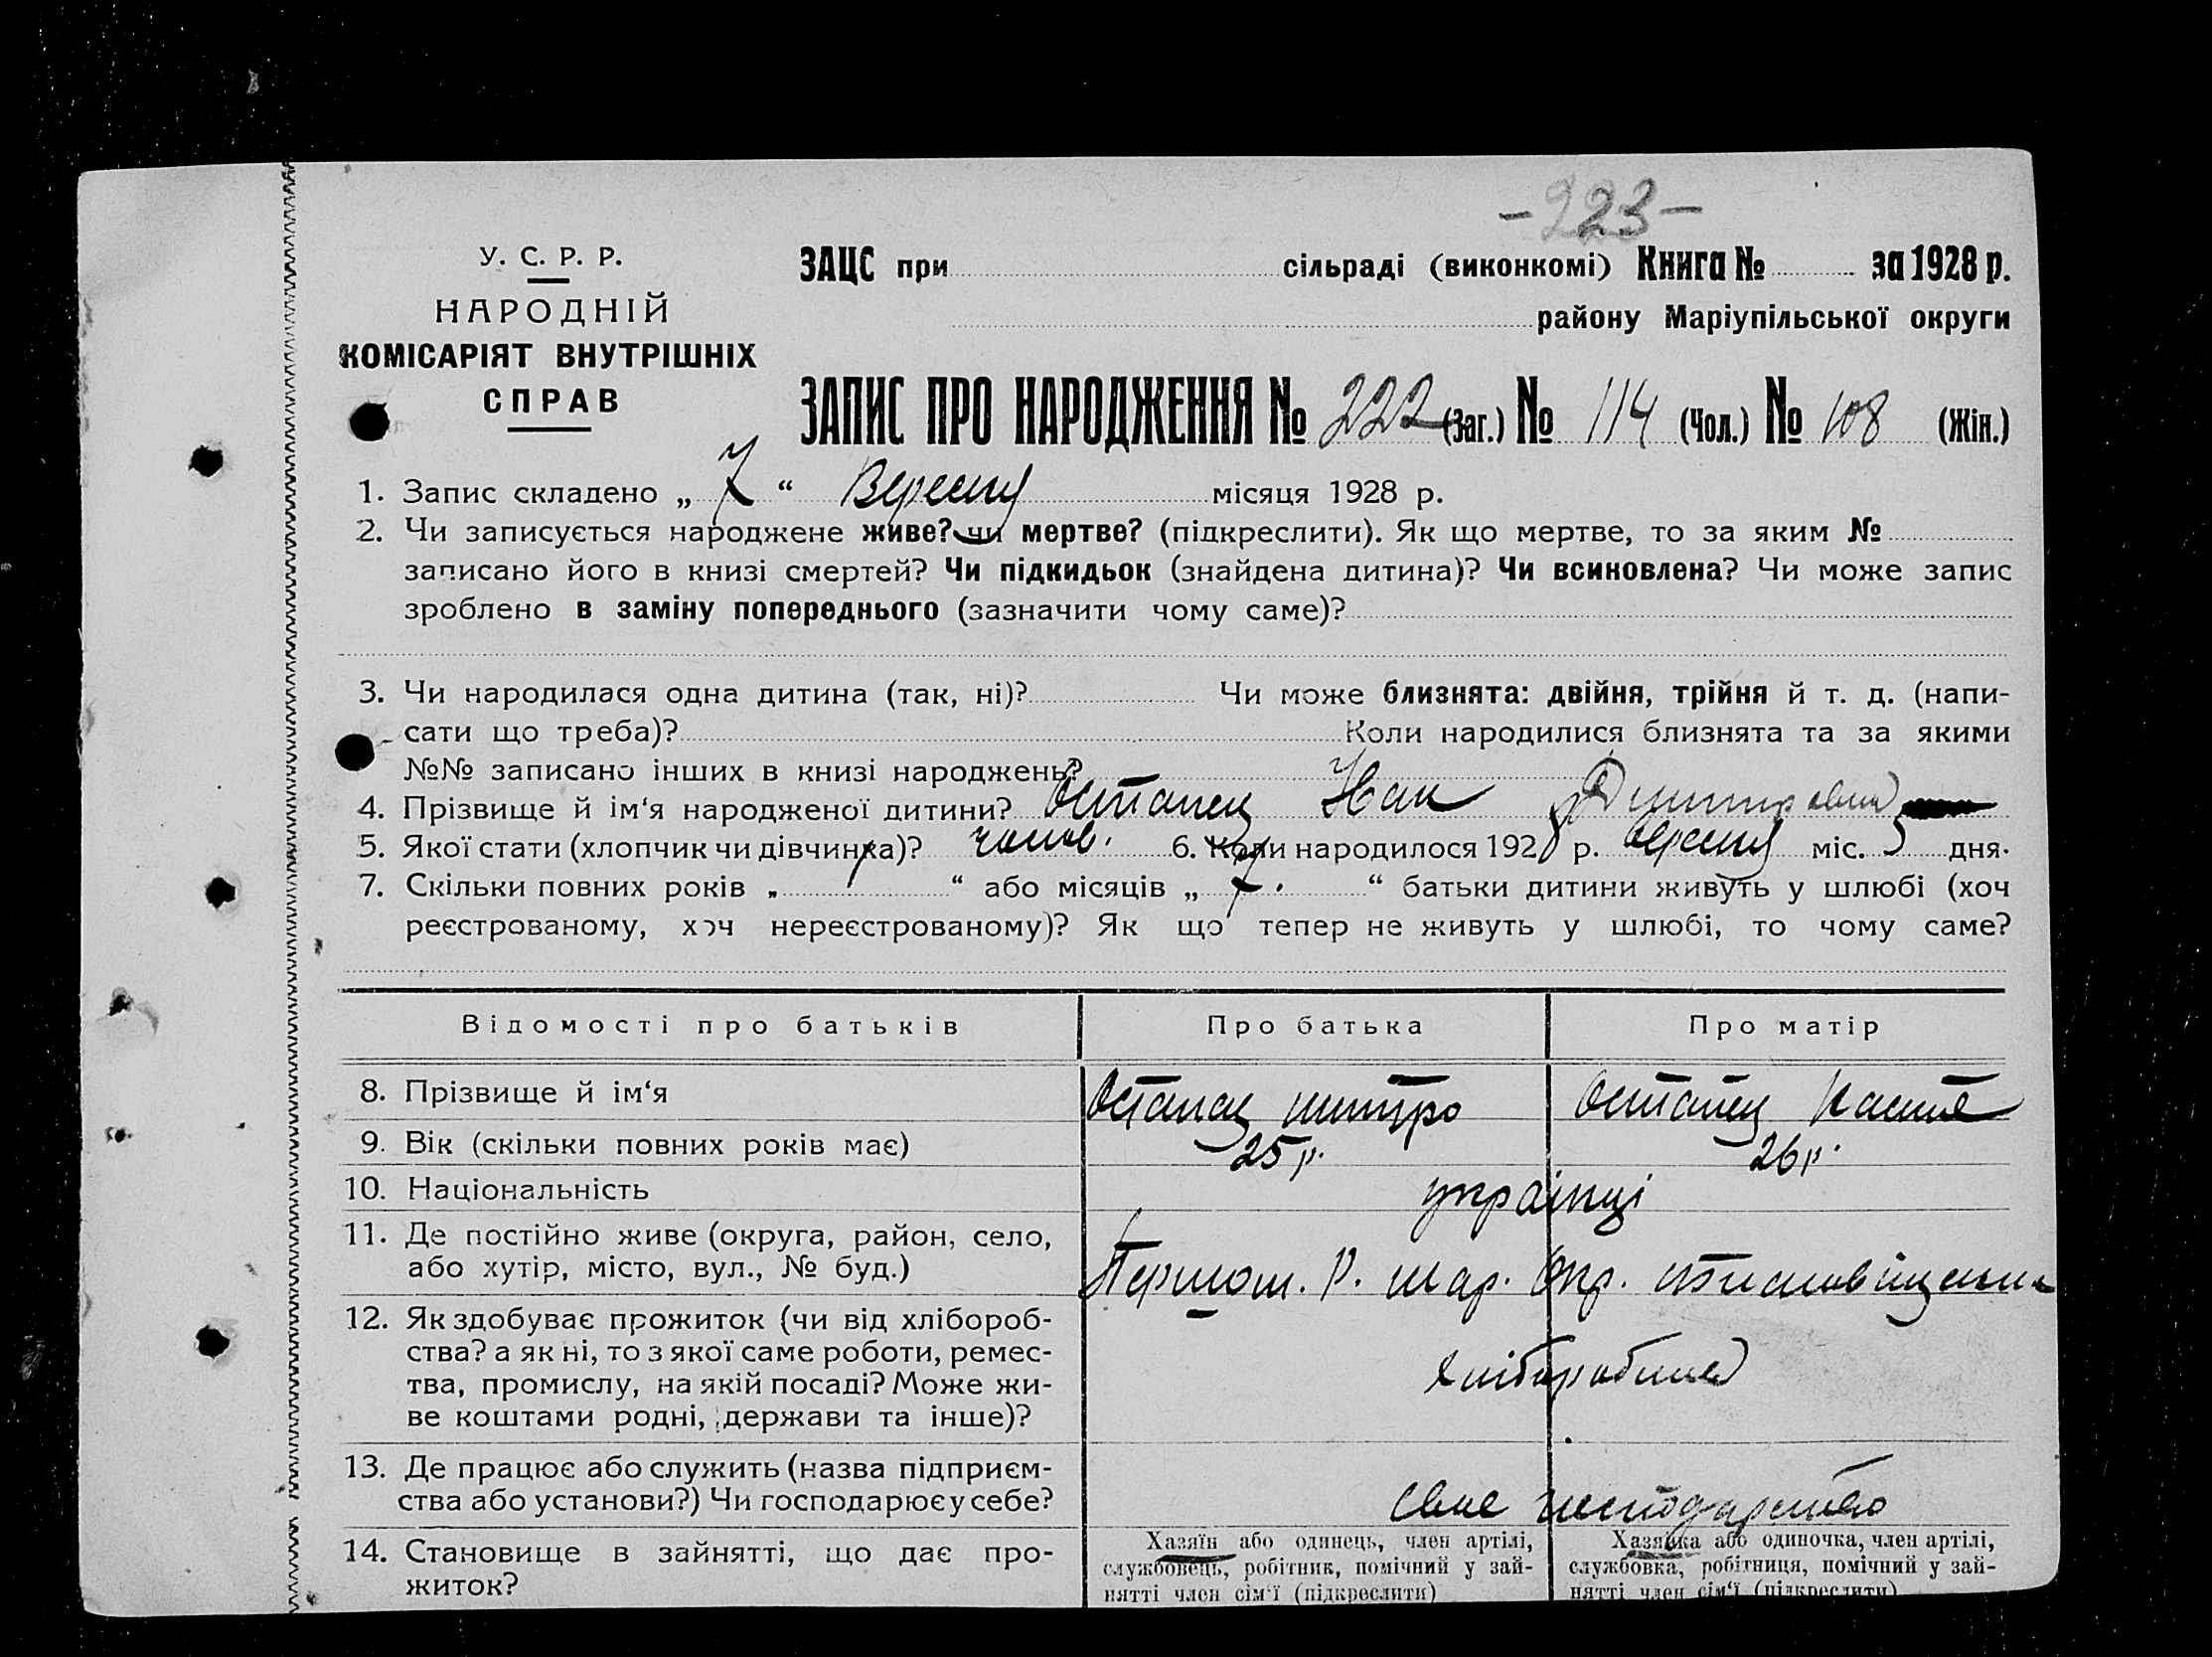 -223-
У. С. Р. Р.
НАРОДНІЙ
КОМІСАРІЯТ ВНУТРІШНІХ
СПРАВ
ЗАЦС при сільраді (виконкомі) Книга № за 1928 р.
району Маріупільської округи
ЗАПИС ПРО НАРОДЖЕННЯ № 222 (Заг.) № 114 (Чол.) № 108 (Жін.)
1. Запис складено „ 7 “ Вересня місяця 1928 р.
2. Чи записується народжене живе? чи мертве? (підкреслити). Як що мертве, то за яким №
записано його в книзі смертей? Чи підкидьок (знайдена дитина)? Чи всиновлена? Чи може запис
зроблено в заміну попереднього (зазначити чому саме)?
3. Чи народилася одна дитина (так, ні)? Чи може близнята: двійня, трійня й т. д. (напи-
сати що треба)? Коли народилися близнята та за якими
№№ записано інших в книзі народжень?
4. Прізвище й ім‘я народженої дитини? Остапец Іван
5. Якої стати (хлопчик чи дівчинка)? чолов. 6. Коли народилося 1928 р. вересня міс. 5 дня.
7. Скільки повних років „ “ або місяців „ 7. “ батьки дитини живуть у шлюбі (хоч
реєстрованому, хоч нереєстрованому)? Як що тепер не живуть у шлюбі, то чому саме?
Відомості про батьків Про батька Про матір
8. Прізвище й ім‘я Остапец Остапец
9. Вік (скільки повних років має) 25 р. 26 р.
10. Національність українці
11. Де постійно живе (округа, район, село,
або хутір, місто, вул., № буд.) Першот. Р. Мар. Окр.
12. Як здобуває прожиток (чи від хлібороб-
ства? а як ні, то з якої саме роботи, ремес-
тва, промислу, на якій посаді? Може жи-
ве коштами родні, держави та інше)?
13. Де працює або служить (назва підприєм-
ства або установи?) Чи господарює у себе? Своє господарство
14. Становище в зайнятті, що дає про-
житок?
Хазяїн або одинець, член артілі,
службовець, робітник, помічний у зай-
нятті член сім‘ї (підкреслити)
Хазяйка або одиночка, член артілі,
службовка, робітниця, помічний у зай-
нятті член сім‘ї (підкреслити)